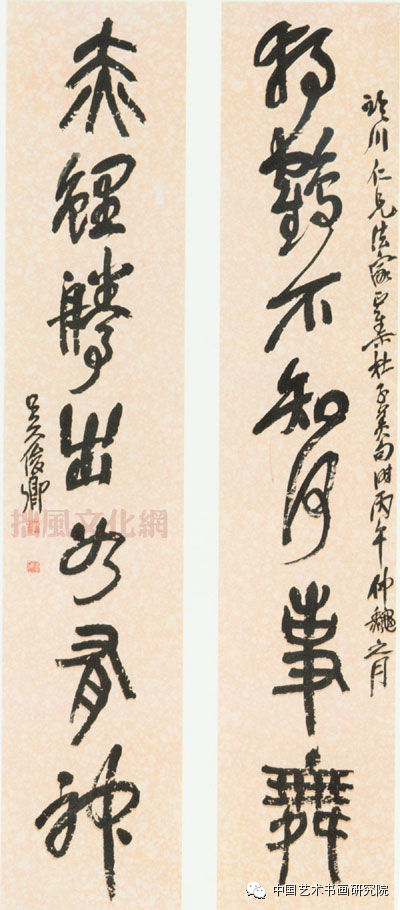 川仁兄法家正集杜子美句時丙午仲龝之月
獨鶴不知何事舞
赤鯉騰出如有神
吴俊卿
拙風文化網
中国艺术书画研究院